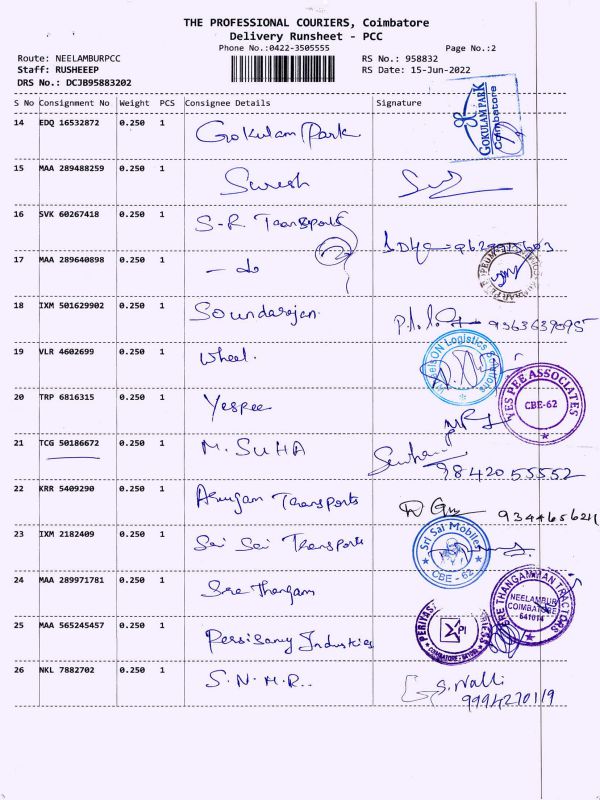 THE PROFESSIONAL COURIERS, Coimbatore
Delivery Runsheet - PCC
Phone No.:0422-3505555
Page No.:2
Route: NEELAMBURPCC
RS No.: 958832
Staff: RUSHEEEP
RS Date: 15-Jun-2022
DRS No.: DCJB95883202
S No Consignment No Weight PCS Consignee Details Signature
14 EDQ 16532872 0.250 1 Gokulam Park
GOKULAM PARK
Coimbatore
15 MAA 289488259 0.250 1 Suresh
16 SVK 60267418 0.250 1 S-R Transports
17 MAA 289640898 0.250 1
18 IXM 501629902 0.250 1 Soundarajan.
9363639095
19 VLR 4602699 0.250 1 Wheel.
WheelsON Logistics Solutions
20 TRP 6816315 0.250 1 Yespee
YES PEE ASSOCIATES
CBE-62
21 TCG 50186672 0.250 1 M. SUHA
9842055552
22 KRR 5409290 0.250 1 Arugam Transports
23 IXM 2182409 0.250 1 Sai Sai Transports
Sri Sai Mobiles
CBE - 62
24 MAA 289971781 0.250 1 Sree Thangam
SREE THANGAMMAN TRACTORS
NEELAMBUR
COIMBATORE
641014
25 MAA 565245457 0.250 1 Perisamy Industries
26 NKL 7882702 0.250 1 S.N.M.R..
S. Nalli
9994270119